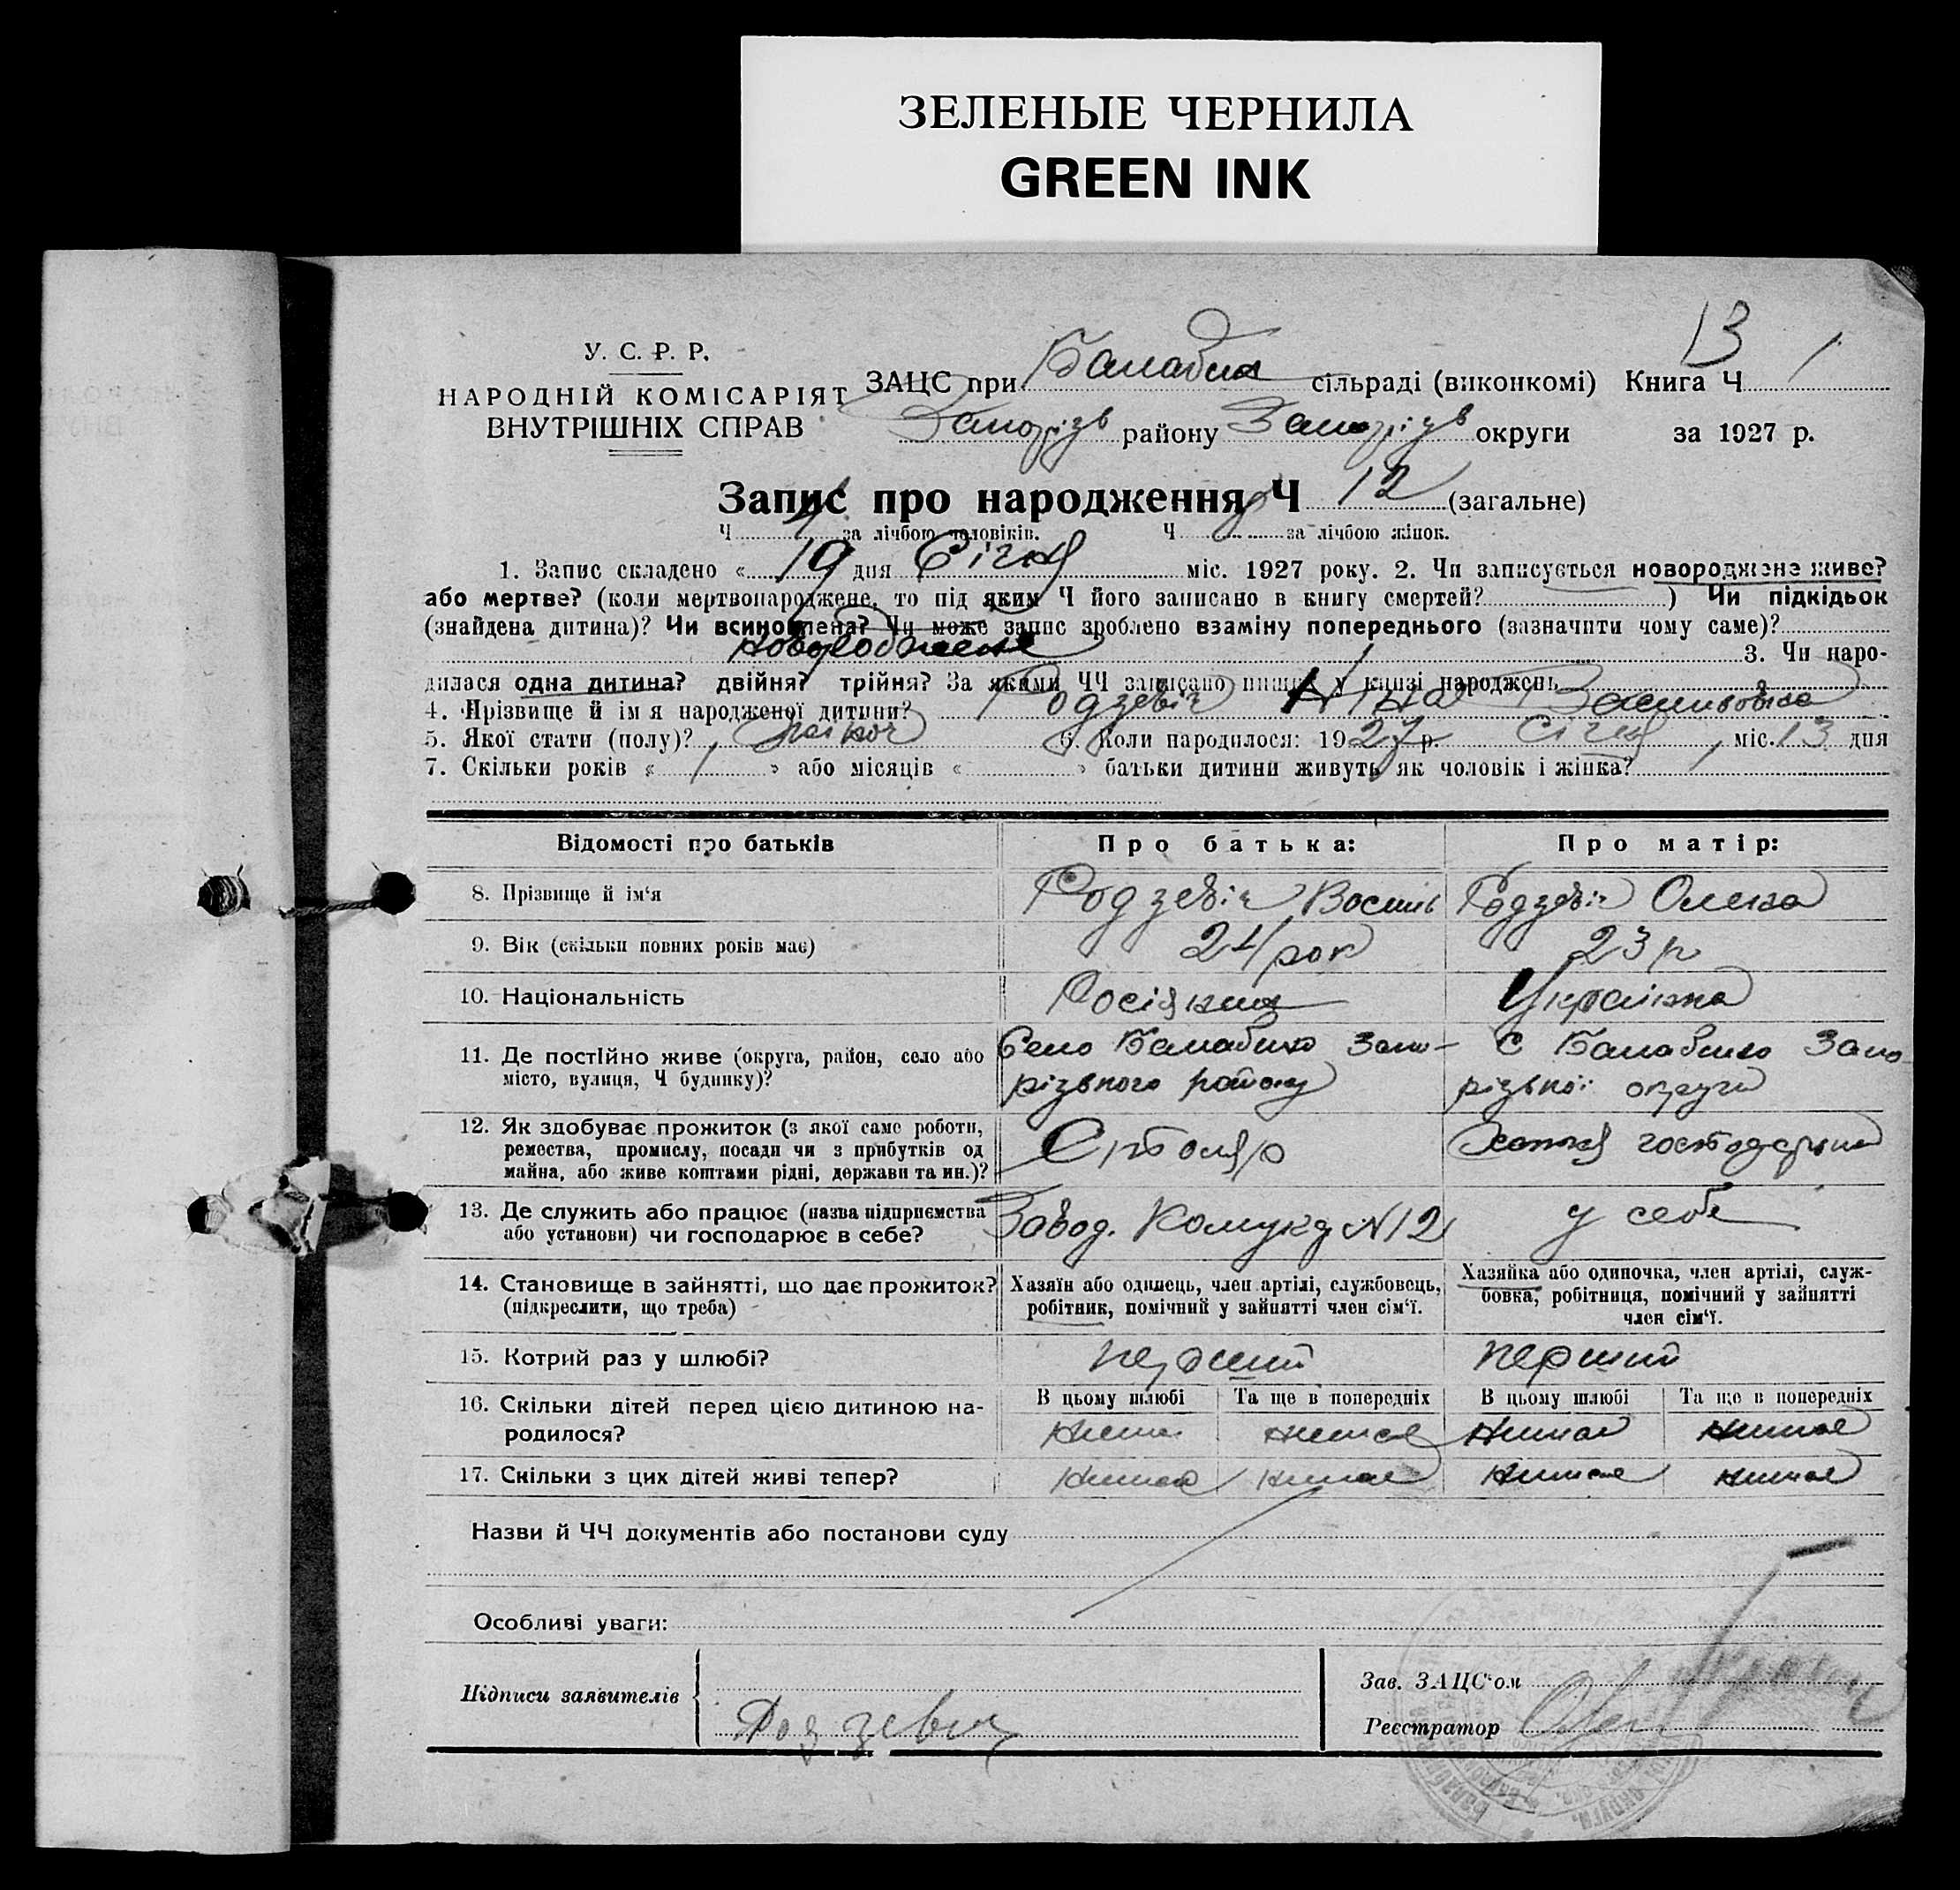 ЗЕЛЕНЫЕ ЧЕРНИЛА
GREEN INK
13
У. С. Р. Р.
НАРОДНІЙ КОМІСАРІЯТ
ВНУТРІШНІХ СПРАВ
ЗАЦС при сільраді (виконкомі) Книга Ч
Запорізь району Запорізь округи за 1927 р.
Запис про народження Ч 12 (загальне)
Ч за лічбою чоловіків. Ч за лічбою жінок.
1. Запис складено « 19 дня Січня міс. 1927 року. 2. Чи записується новороджене живе?
або мертве? (коли мертвонароджене, то під яким Ч його записано в книгу смертей? ) Чи підкідьок
(знайдена дитина)? Чи всиновлена? Чи може запис зроблено взаміну попереднього (зазначити чому саме)?
новороджене 3. Чи наро-
дилася одна дитина? двійня? трійня? За якими ЧЧ записано инших у книзі народжень
4. Прізвище й ім я народженої дитини? Родзевіч Ніна Васильовна
5. Якої стати (полу)? жіноч 6. Коли народилося: 1927 р. Січня міс. 13 дня
7. Скільки років « 1 » або місяців « » батьки дитини живуть як чоловік і жінка?
Відомості про батьків Про батька: Про матір:
8. Прізвище й ім‘я Родзевіч Василь Родзевіч Олена
9. Вік (скільки повних років має) рок 23 р
10. Національність Українка
11. Де постійно живе (округа, район, село або місто, вулиця, Ч будинку)?
Село Балабино Запо-
різького району
С Балабино Запо
різької округи
12. Як здобуває прожиток (з якої саме роботи,
ремества, промислу, посади чи з прибутків од
майна, або живе коштами рідні, держави та ин.)?
Столяр
Хатня господарка
13. Де служить або працює (назва підприємства
або установи) чи господарює в себе?
Завод. Комунд N12
у себе
14. Становище в зайнятті, що дає прожиток?
(підкреслити, що треба)
Хазяїн або одинець, член артілі, службовець,
робітник, помічний у зайнятті член сім‘ї.
Хазяйка або одиночка, член артілі, служ-
бовка, робітниця, помічний у зайнятті
член сім‘ї.
15. Котрий раз у шлюбі? перший перший
16. Скільки дітей перед цією дитиною на-
родилося?
В цьому шлюбі Та ще в попередніх В цьому шлюбі Та ще в попередніх
немає немає немає
17. Скільки з цих дітей живі тепер? немає немає немає немає
Назви й ЧЧ документів або постанови суду
Особливі уваги:
Підписи заявителів
Родзевич
Зав. ЗАЦС‘ом
Реєстратор